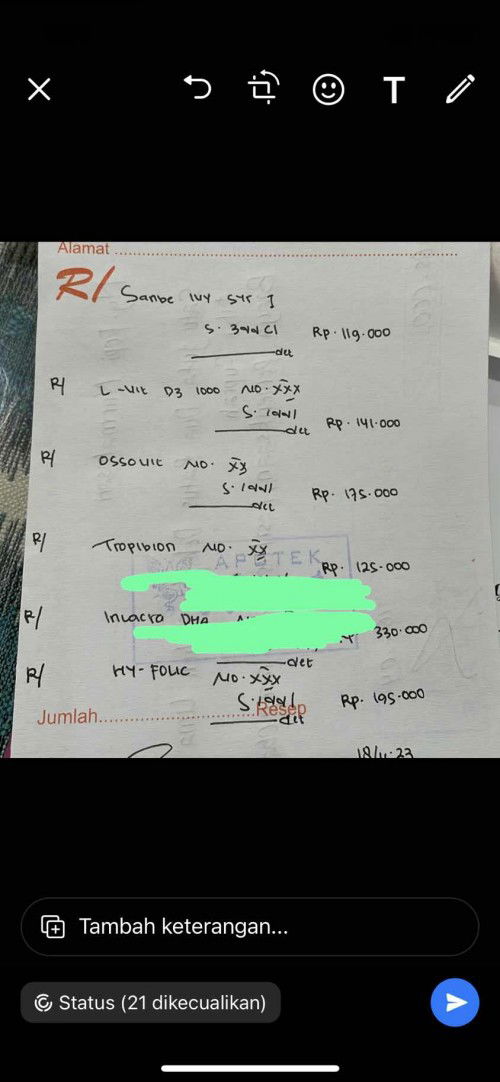 T
Alamat
R/ Sanbe Ivy Syr I
S. 3dd C1 Rp. 119.000
det
R/ L-Vit D3 1000 NO. XXX
S. 1dd1
det Rp. 141.000
R/ Ossovit NO. XX
S. 1dd1 Rp. 175.000
det
R/ Tropibion NO. XX
APOTEK
Rp. 125.000
R/ DHA
330.000
det
R/ HY-FOLIC NO. XXX
S. 1dd1 Rp. 195.000
Jumlah Resep
det
23
Tambah keterangan...
Status (21 dikecualikan)